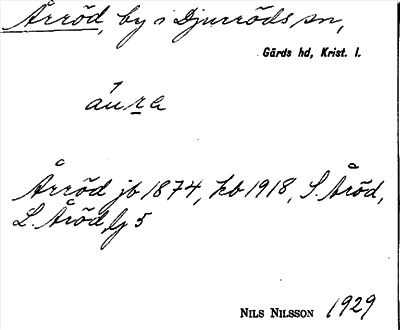 Årröd, by i Djurröds sn,
Gärds hd, Krist. l.
áura
Årröd jb 1874, kb 1918, S. Åröd,
L. Åröd, lj 5
NILS NILSSON 1929